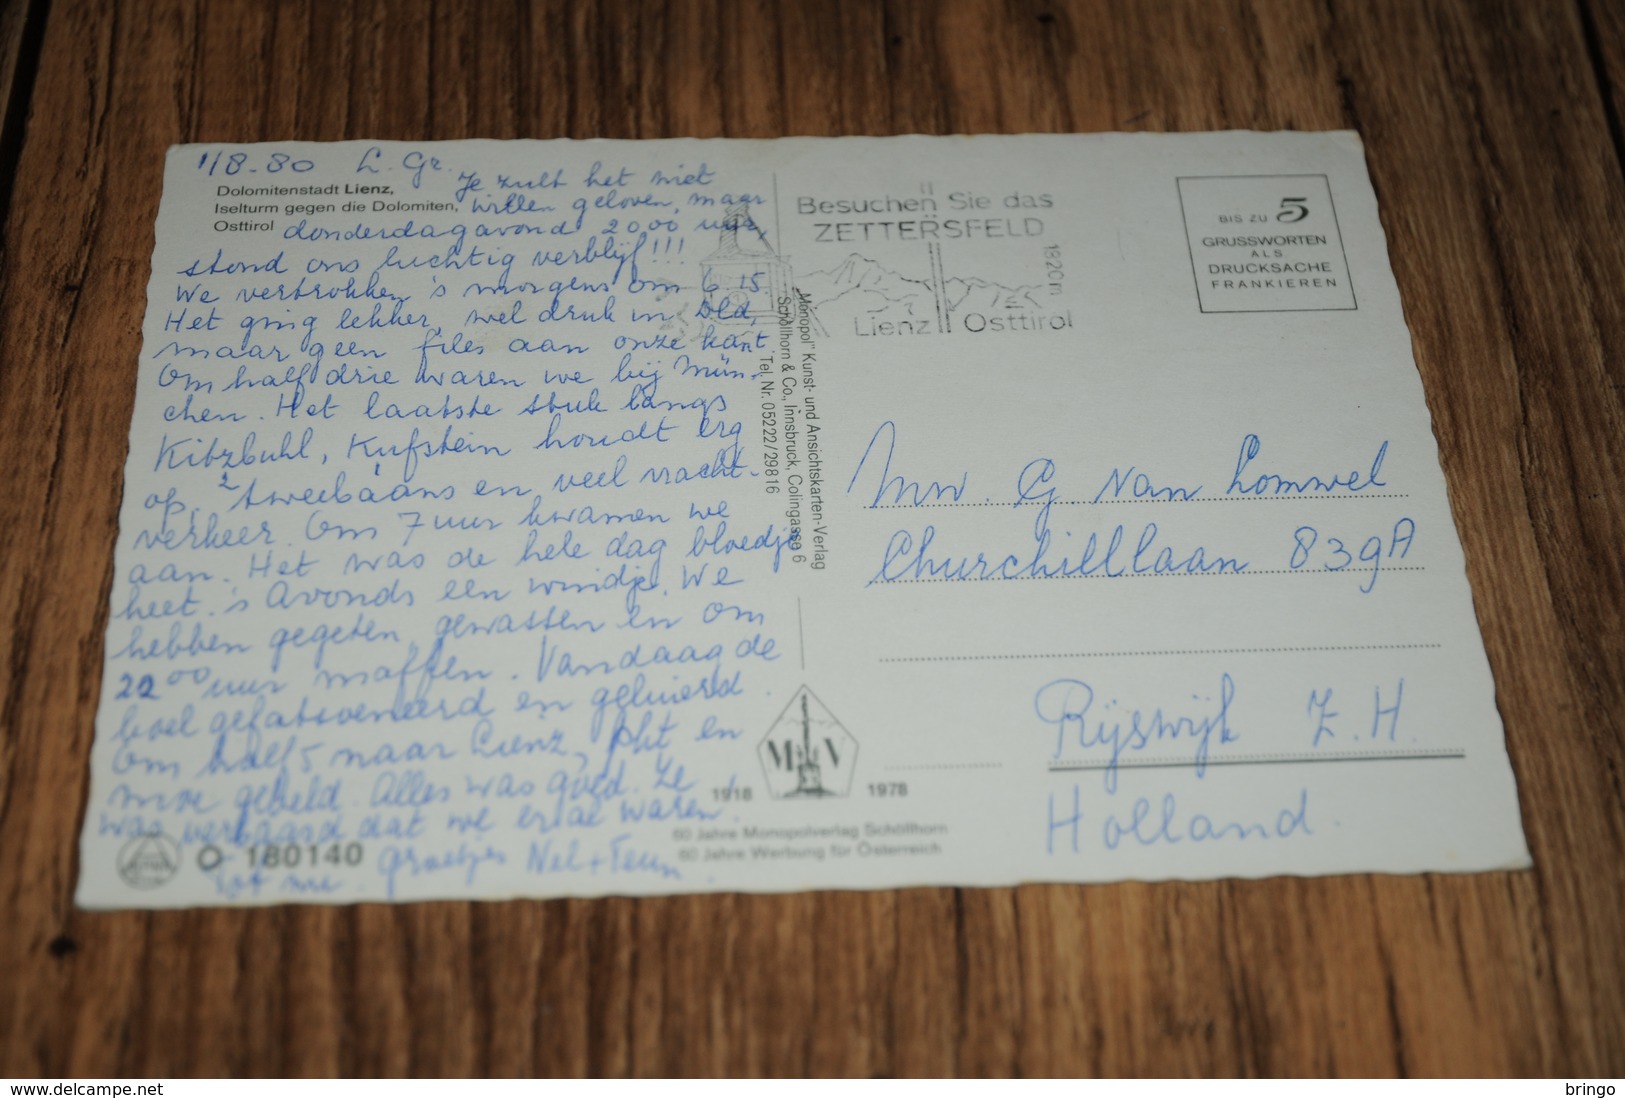 1/8-80 L. Gr.
Je zult het niet
Dolomitenstadt Lienz,
Iselturm gegen die Dolomiten,
Osttirol
willen geloven, maar
donderdagavond 20.00 uur,
stond ons luchtig verblijf!!!
We vertrokken 's morgens om 6.15.
Het ging lekker, wel druk in Dld,
maar geen files aan onze kant
Om half drie waren we bij Mün-
chen. Het laatste stuk langs
Kitzbuhl, Kufstein houdt erg
op, 2 tweebaans en veel vracht-
verkeer. Om 7 uur kwamen we
aan. Het was de hele dag bloedje
heet. 's Avonds een windje. We
hebben gegeten, gewassen en om
22.00 uur maffen. Vandaag de
boel gefatsoeneerd en geluierd.
Om half 5 naar Lienz, pht en
moe gebeld. Alles was goed. Ze
was verbaasd dat we er al waren!
Tot mie. groetjes Nel + Teun
O 180140
Besuchen Sie das
ZETTERSFELD
1820m
Lienz Osttirol
BIS ZU 5
GRUSSWORTEN
ALS
DRUCKSACHE
FRANKIEREN
„Monopol" Kunst- und Ansichtskarten-Verlag
Schöllhorn & Co., Innsbruck, Colingasse 6
Tel. Nr. 05222/29816
Mw. G. van Lomwel
Churchilllaan 839A
Rijswijk Z.H.
Holland
M V
1918 1978
60 Jahre Monopolverlag Schöllhorn
60 Jahre Werbung für Österreich
https://www.delcampe.net
bringo